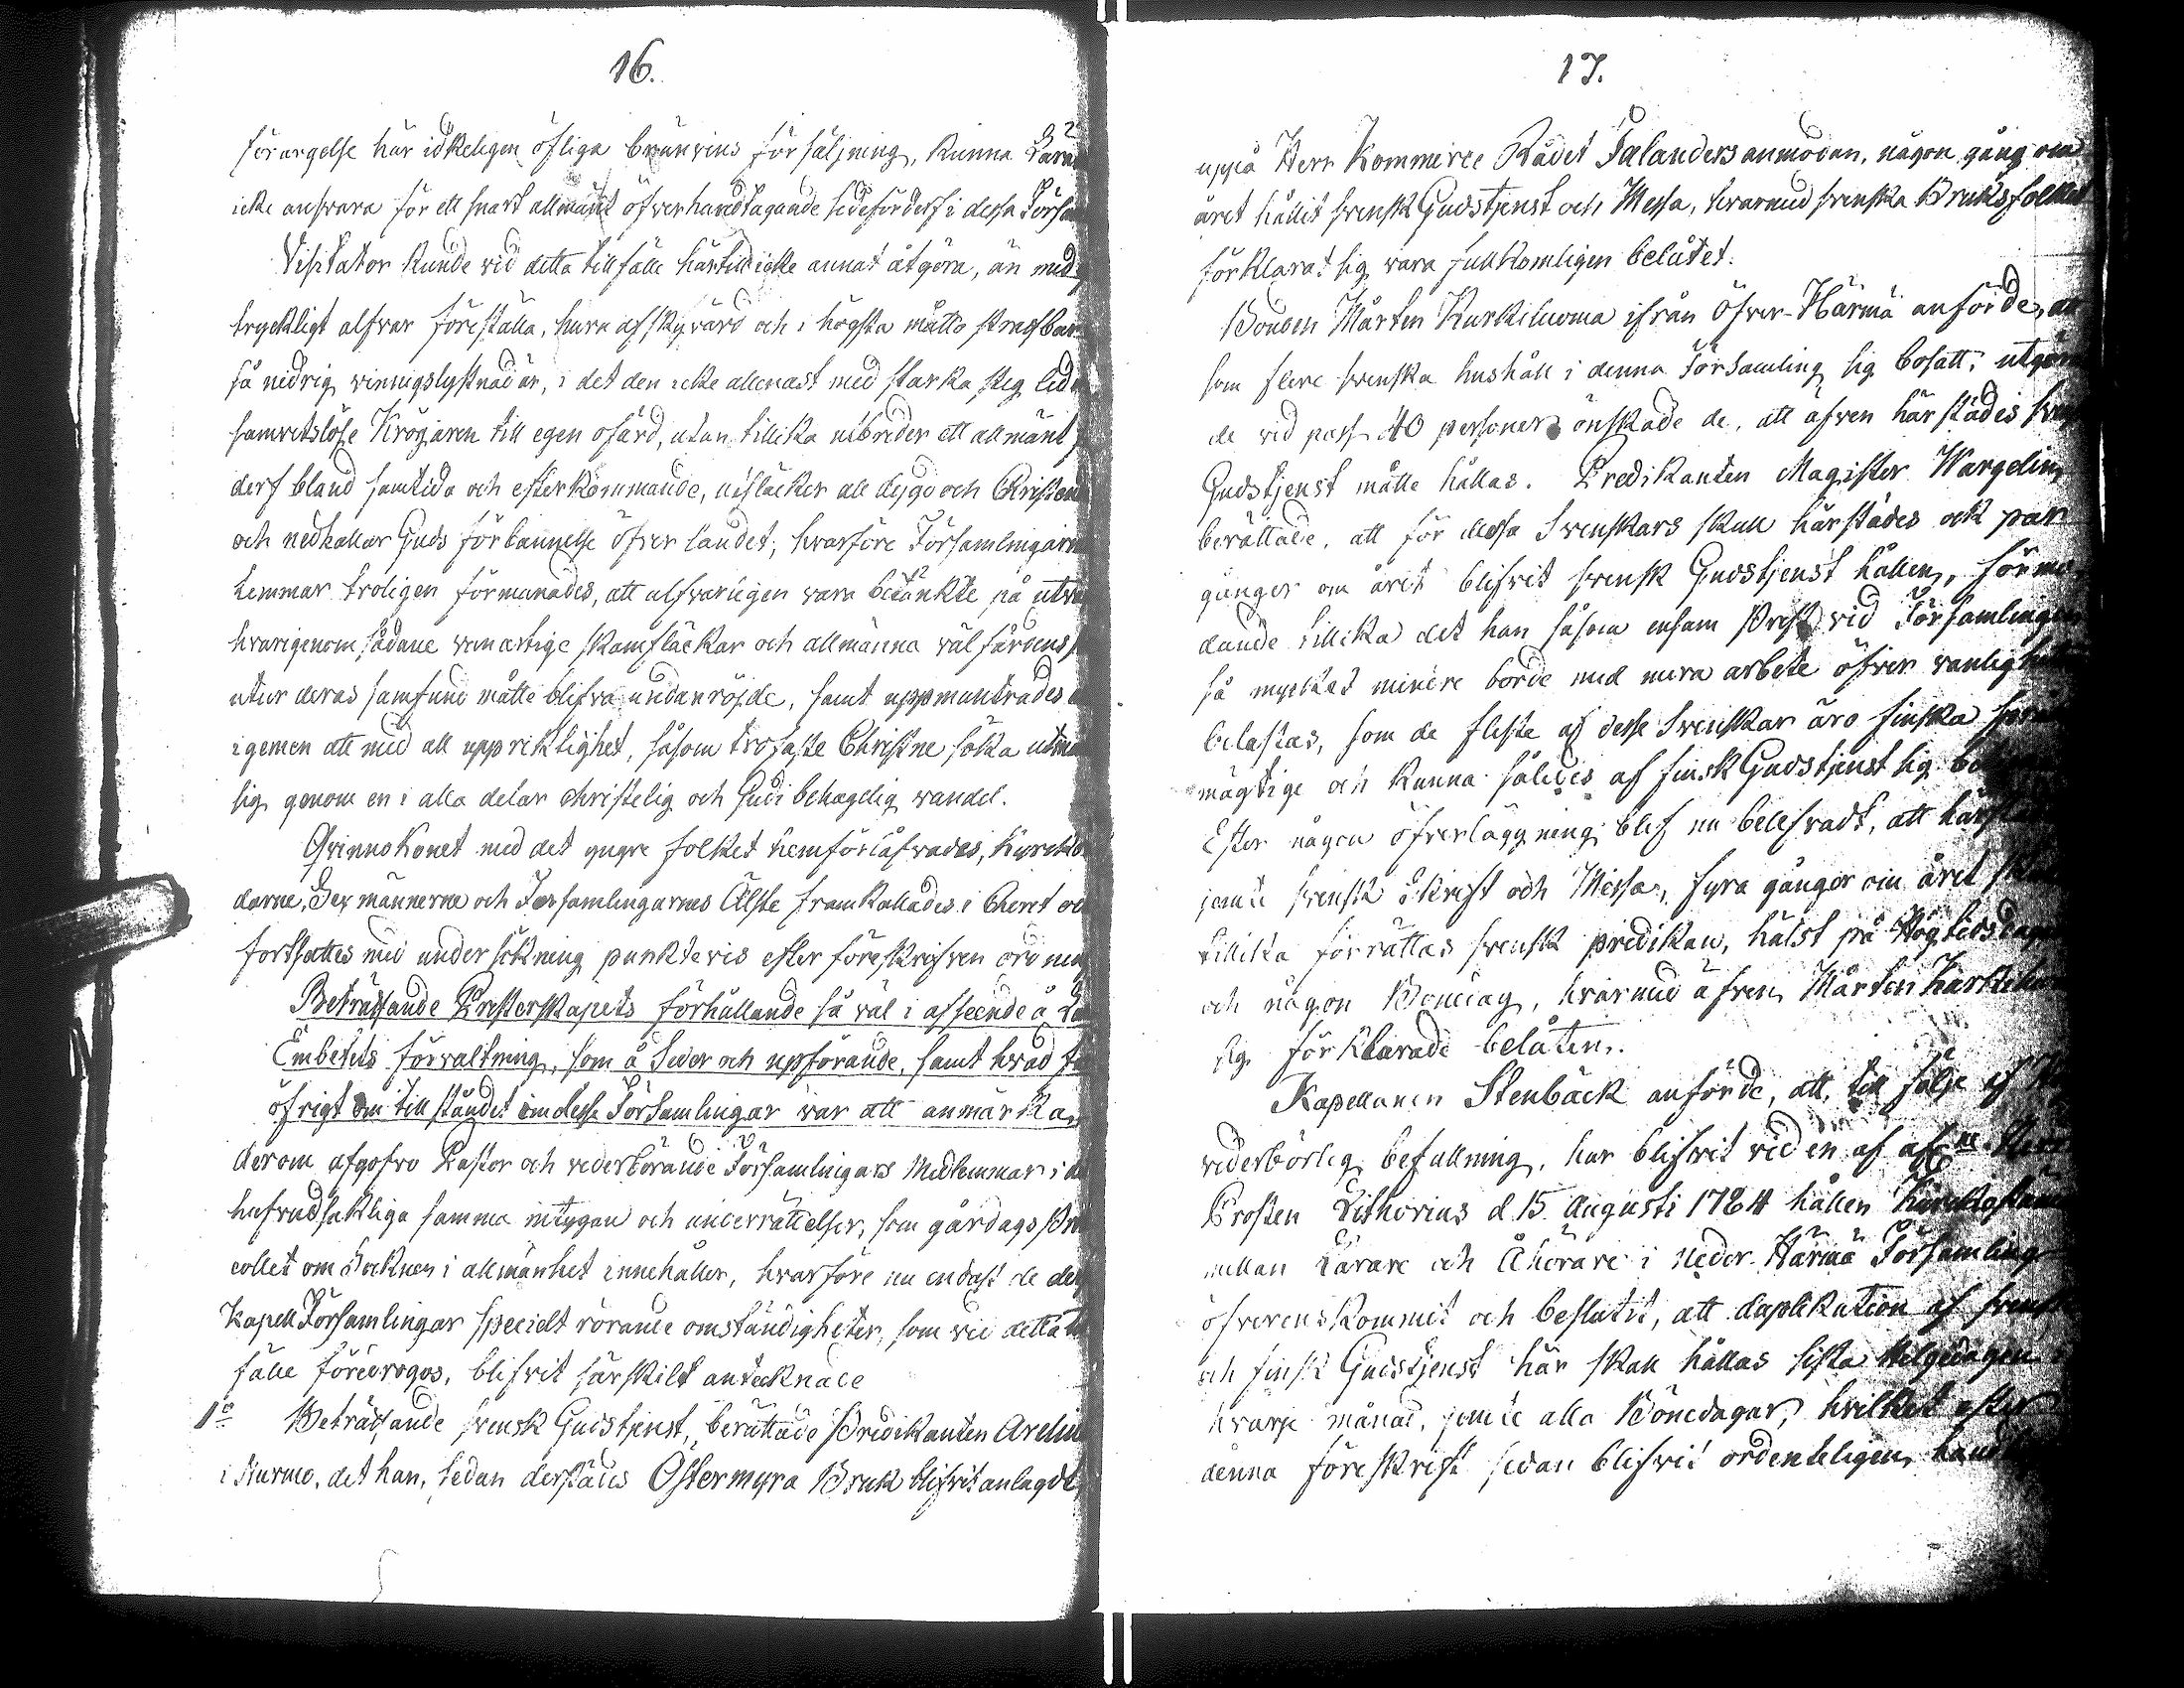 16.
förargelse här idkeligen öfliga bränvins försäljning, kunna
icke ansvara för ett snart allmänt öfverhandtagande sedeförderf i dessa
Visitator kunde vid detta tillfälle härtill icke annat åtgöra, än med
tryckligt alfvar föreställa, huru afskyvärd och i högsta måtto straffbar
så nedrig winnigslystnad är, i det den icke allenast med starka steg
samvetslöse Krögaren till egen ofärd, utan tillika utbreder ett allmänt
derf bland samtida och efterkommande, utsläcker all dygd och
och nedkallar Guds förbannelse öfver landet; hvarföre
lemmar troligen förmanades, att alfvarligen vara betänkte på
hvarigenom sådane vanartige skamfläckar och allmänna välfärdens
utur deras samfund måtte blifva undanröjde, samt uppmuntrades
igemen att med all uppriktighet, såsom trofaste Christne söka
sig genom en i alla delar christelig och Gudi behagelig vandel.
Qvinnokönet med det yngre folket hemförlåfvades,
darne, Sexmännerne och Församlingarnes Älste framkallades i Choret
fortsattes med undersökning punktevis efter föreskrifven
Beträffande Presterskapets förhållande så väl i afseende å
Embetets förvaltning, som å Seder och upförande, samt hvad
öfrigt om tillståndet i desse Församlingar var att anmärka,
derom afgofvo Pastor och vederbörande Församlingars Medlemmar i
hufvudsakliga samma intygan och underrättelser, som gårdags
collet om Socknen i allmänhet innehåller, hvarföre nu endast de
Kapell Församlingar specielt rörande omständigheter, som vid detta
fälle föredrogos, blifvit särskilt antecknade
1º Beträffande svensk Gudstjenst, berättade Predikanten
i Nurmo, det han, sedan derstädes Östermyra Bruk blifvit anlagdt,
17.
uppå Herr Kommerce Rådet Falanders anmodan, någon gång om
året hållit svensk Gudstjenst och Messa, hvarmed svenska Bruksfolket
förklarat sig vara fullkomligen belåtet.
Bonden Mårten Kurkiluoma ifrån Öfver-Härmä anförde,
som flere svenska hushåll i denna Församling sig bosatt,
de vid pass 40 personer önskade de, att äfven härstädes
Gudstjenst måtte hållas. Predikanten Magister
berättade, att för dessa Svenskars skull härstädes ock par
gånger om året blifvit svensk Gudstjenst hållen,
dande tillika det han såsom ensam Prest vid
så mycket mindre borde med mera arbete öfver
belastas, som de fleste af desse Svenskar äro finska
mägtige och kunna således af finsk Gudstjenst sig
Efter någon öfverläggning blef nu belefvadt, att
jemte svensk Skrift och Messa, fyra gånger om året
tillika förrättas svensk predikan, hälst på
och någon Bönedag, hvarmed äfven Mårten
sig förklarade belåten.
Kapellanen Stenbäck anförde, att, till följe af
vederbörlig befallning, har blifvit vid en af
Prosten Lithovius d. 15 Augusti 1784 hållen
mellan Lärare och Åhörare i Neder Härmä
öfverenskommit och beslutit, att duplikation af
och finsk Gudstjenst här skall hållas sista Helgedagen
hvarje månad, jemte alla Bönedagar, hvilket efter
denna föreskrift sedan blifvit ordenteligen